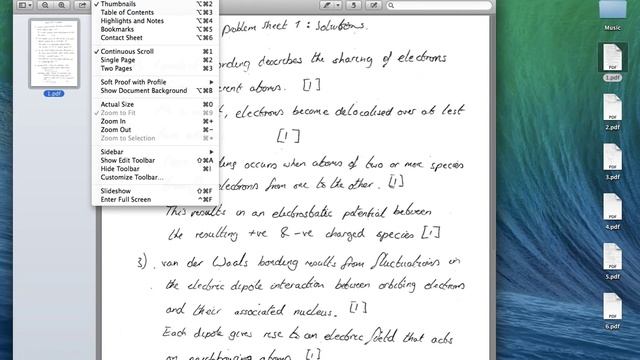 Thumbnails ⌥⌘2
Table of Contents ⌥⌘3
Highlights and Notes ⌥⌘4
Bookmarks ⌥⌘5
Contact Sheet ⌥⌘6
Continuous Scroll ⌘1
Single Page ⌘2
Two Pages ⌘3
Soft Proof with Profile
Show Document Background ⌥⌘B
Actual Size ⌘0
Zoom to Fit ⌘9
Zoom In ⌘+
Zoom Out ⌘−
Zoom to Selection
Sidebar
Show Edit Toolbar ⇧⌘A
Hide Toolbar ⌘I
Customize Toolbar...
Slideshow ⇧⌘F
Enter Full Screen ^⌘F
1.pdf
problem sheet 1 : solutions.
onding describes the sharing of electrons
erent atoms. [1]
t, electrons become delocalised over at lest
[1]
ding occurs when atoms of two or more species
electrons from one to the other. [1]
This results in an electrostatic potential between
the resulting +ve & -ve charged species [1]
3) . van der Waals bonding results from fluctuations in
the electric dipole interaction between orbiting electrons
and their associated nucleus. [1]
Each dipole gives rise to an electric field that acts
on neighbouring atoms [1]
Music
PDF
1.pdf
PDF
2.pdf
PDF
3.pdf
PDF
4.pdf
PDF
5.pdf
PDF
6.pdf